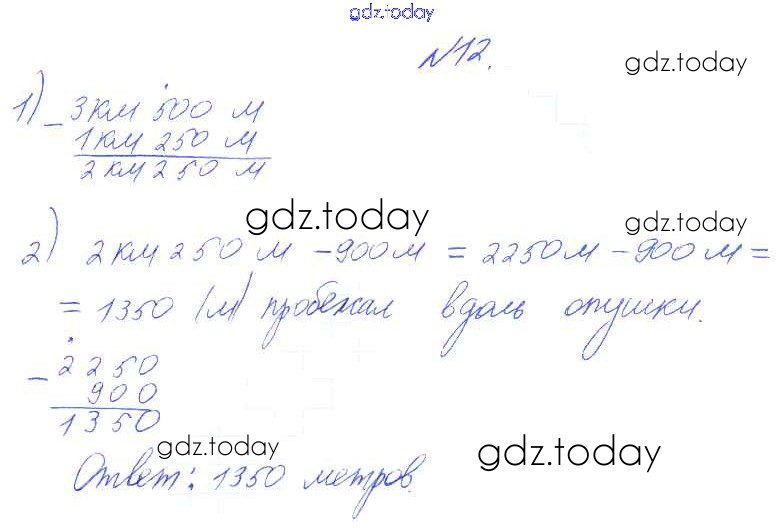 gdz.today
N12.
gdz.today
1) - 3км 500 м
1км 250 м
2км 250 м
gdz.today
gdz.today
2) 2км 250 м - 900м = 2250м - 900м =
= 1350 (м) пробежал вдоль опушки.
- 2250
900
1350
gdz.today
gdz.today
Ответ: 1350 метров.